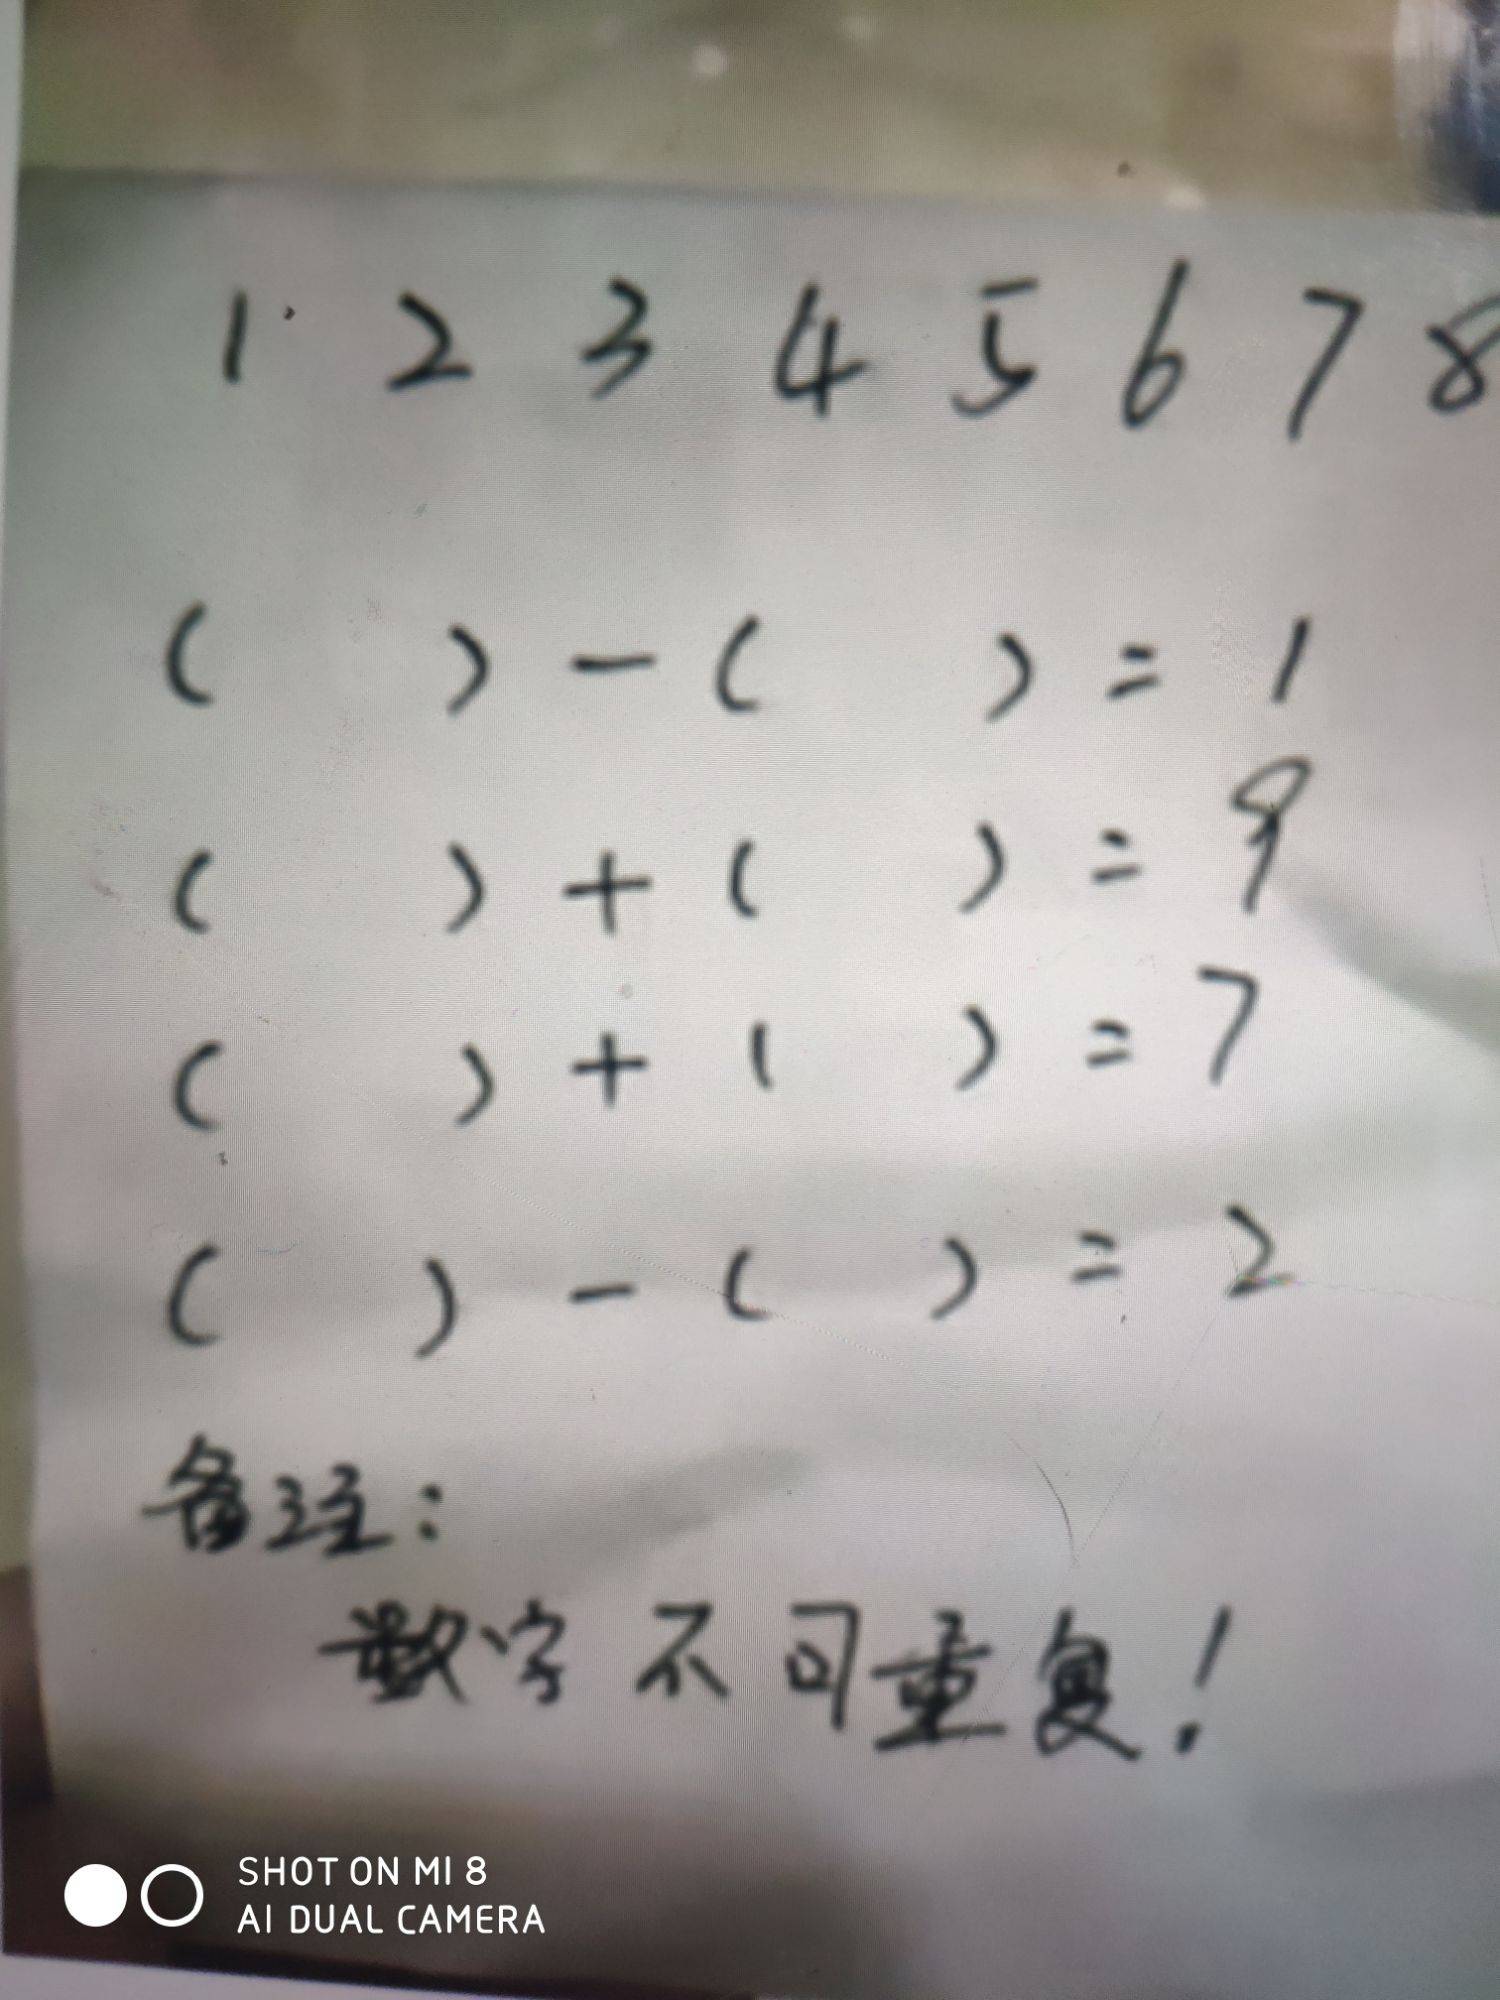 1 2 3 4 5 6 7 8
( ) - ( ) = 1
( ) + ( ) = 9
( ) + ( ) = 7
( ) - ( ) = 2
备注:
数字不可重复!
SHOT ON MI 8
AI DUAL CAMERA